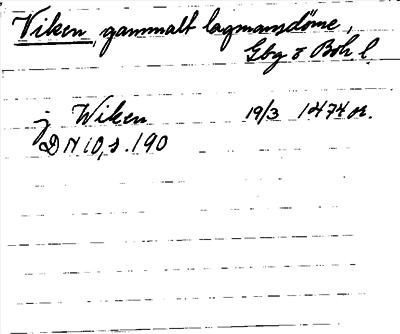 Viken, gammalt lagmansdöme,
Gbg o Boh l.
j Wiken 19/3 1474 or.
DN 10, s. 190